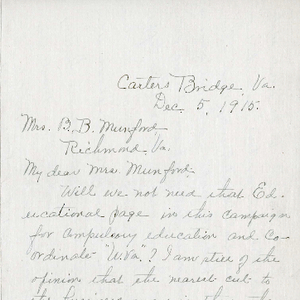 Carters Bridge, Va.
Dec. 5, 1915.
Mrs. B. B. Munford,
Richmond, Va.
My dear Mrs. Munford:
Will we not need that Ed-
ucational page in this campaign
for compulsory education and Co-
ordinate "U.Va."? I am still of the
opinion that the nearest cut to
the